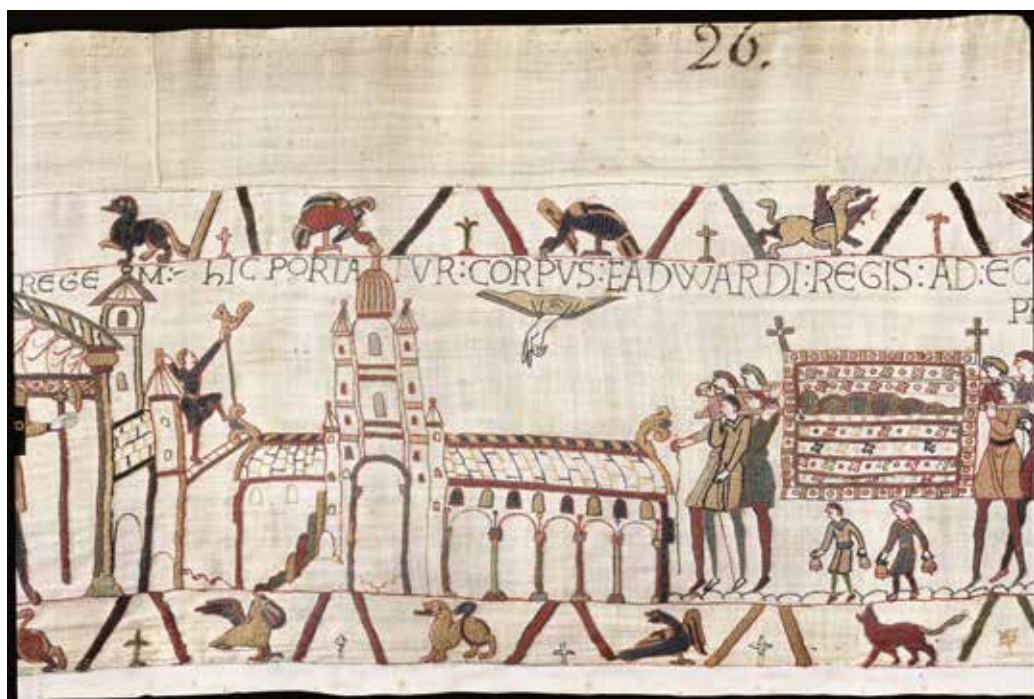 26.
REGE M:- hIC PORTA TVR:CORPVS:EADWARDI:REGIS:AD:EC
P